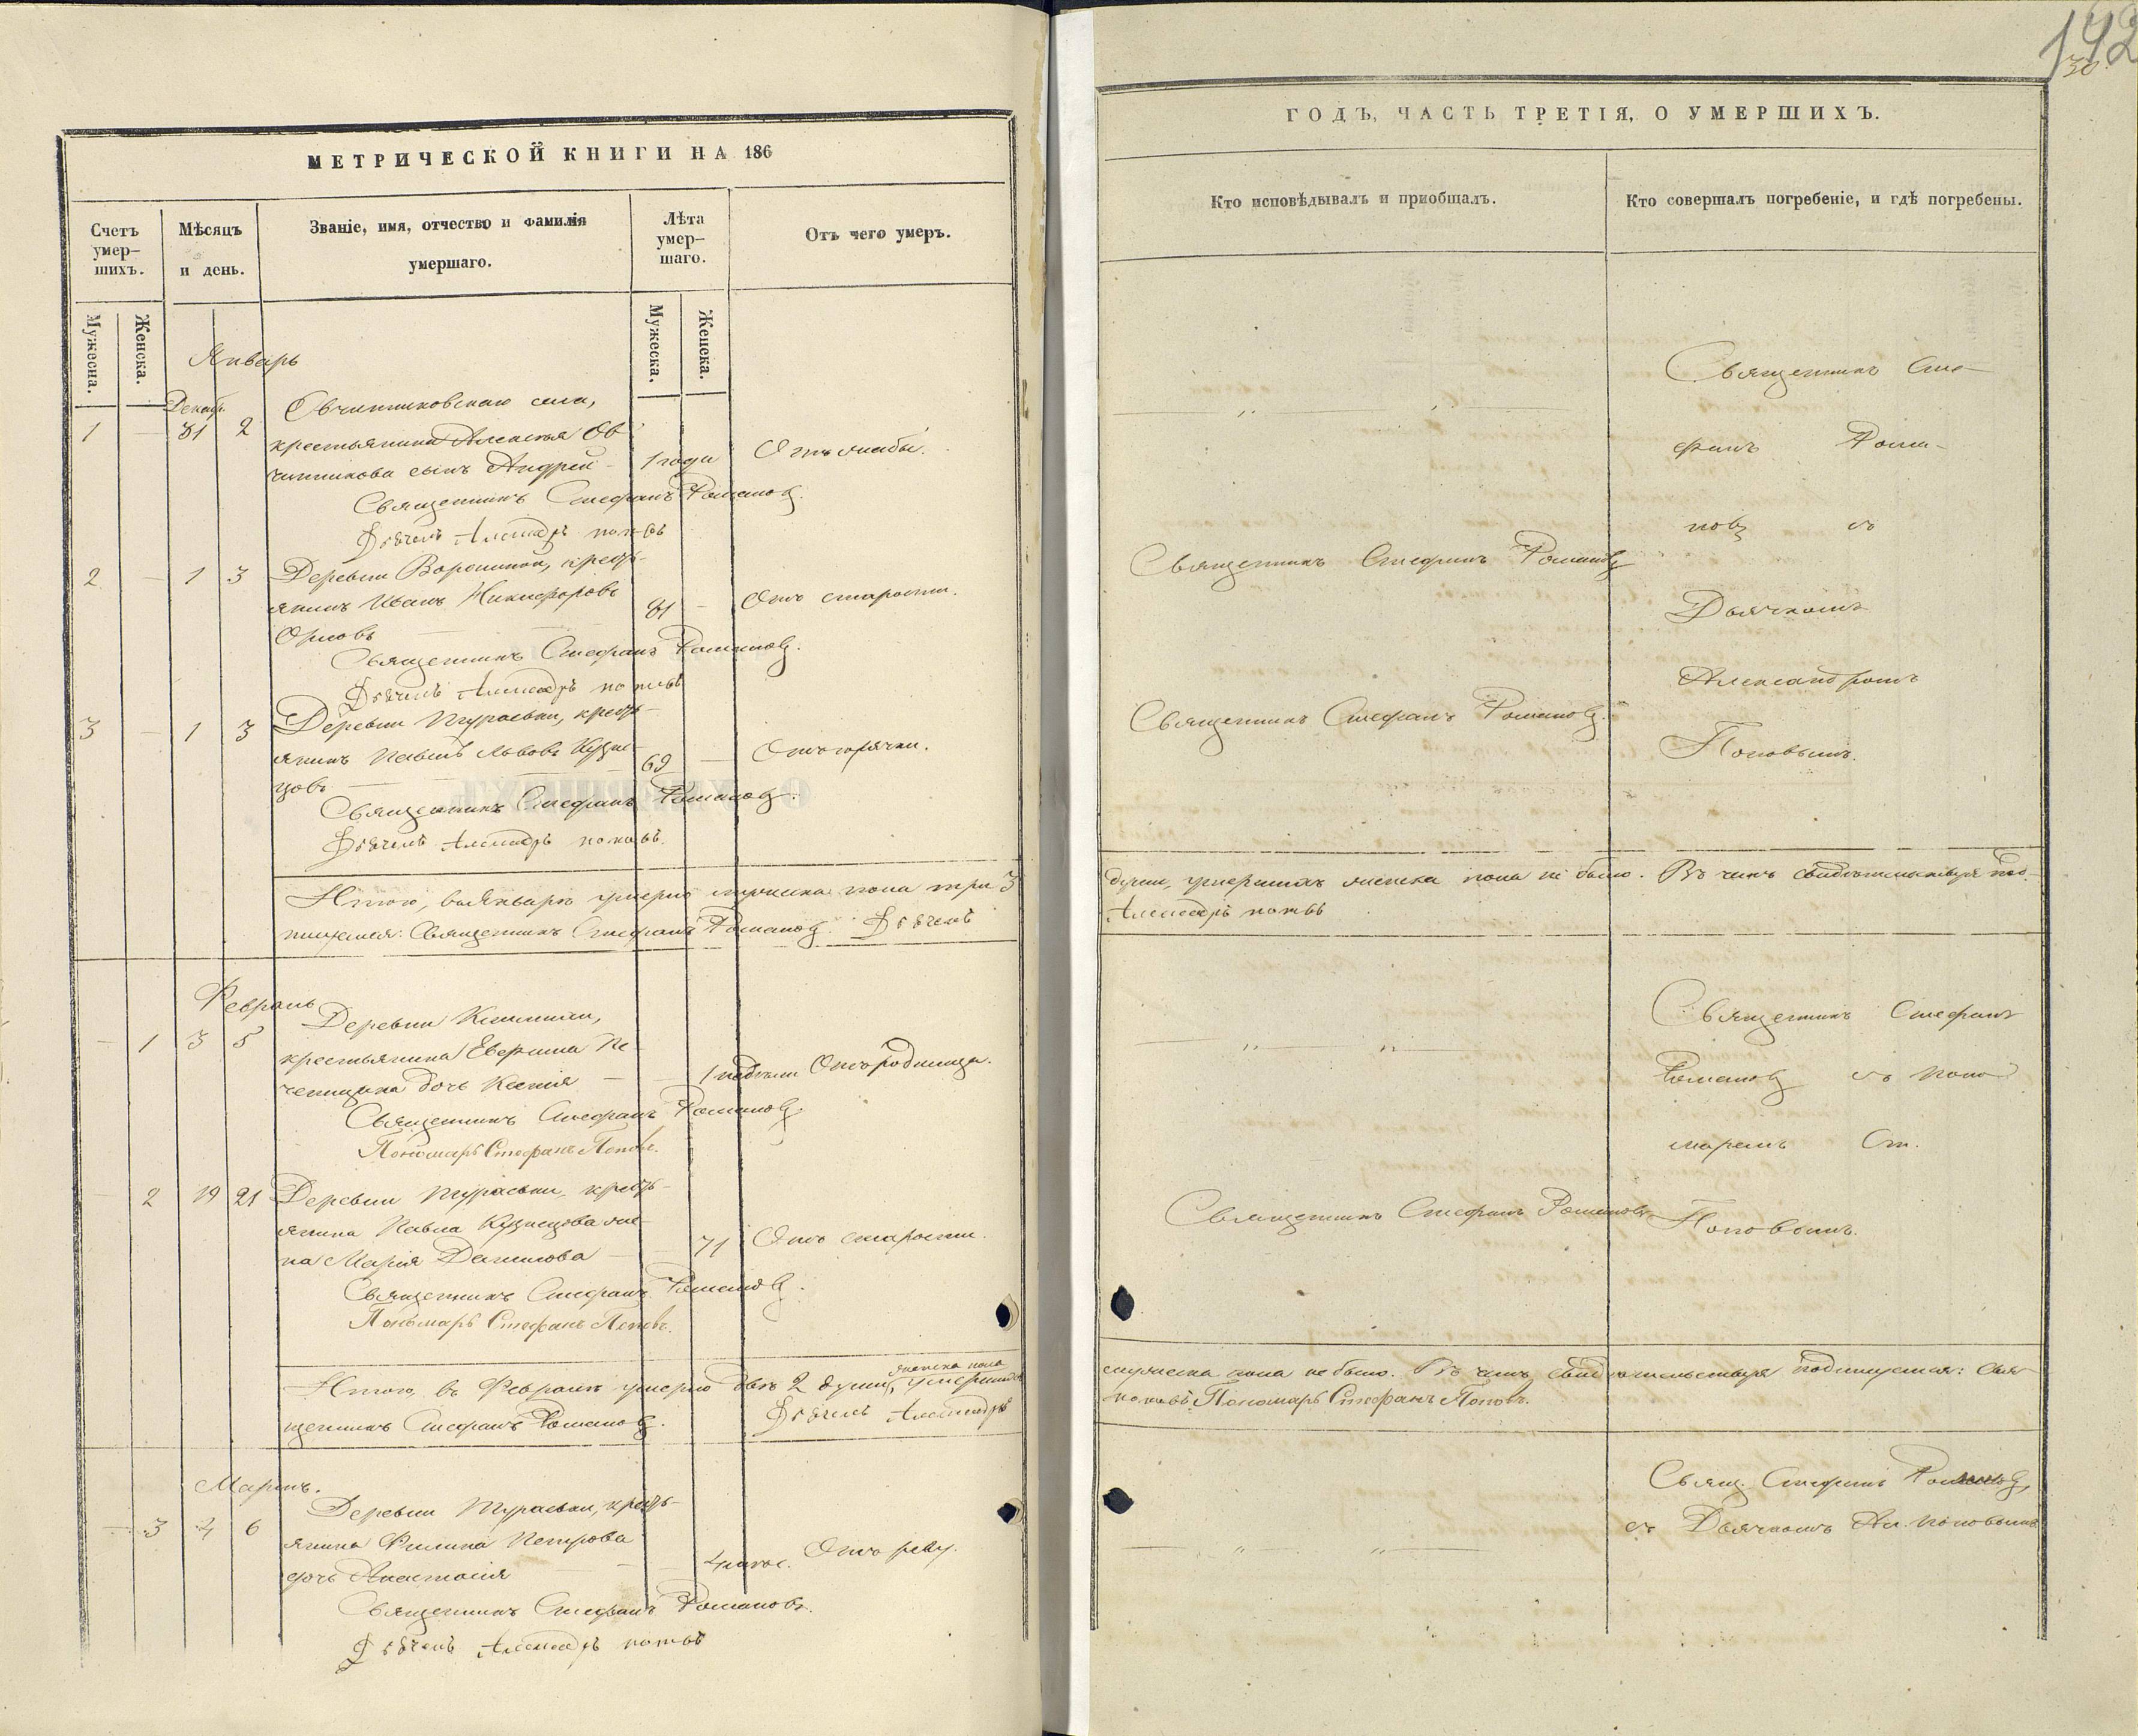 МЕТРИЧЕСКОЙ КНИГИ НА 186
Счетъ умер-шихъ.
Мѣсяцъ и день.
Званіе, имя, отчество и фамилія умершаго.
Лѣта умер-шаго.
Отъ чего умеръ.
Мужеска.
Женска.
Мужеска.
Женска.
Январь
Декаб.
1 — 31 2
Овчинниковскаго села,
крестьянина Алексѣя Ов-
чинникова сынъ Андрей — 1 года Отъ слабы.
Священникъ Стефанъ Романовъ.
Дьячекъ Александръ Поповъ
2 — 1 3 Деревни кресть-
янинъ Иванъ Никифоровъ 81 — Отъ старости.
Орловъ
Священникъ Стефанъ Романовъ.
Дьячекъ Александръ Поповъ
3 — 1 3 Деревни Тураевки, кресть-
янинъ Павелъ Львовъ Кузне- 69 — Отъ горячки.
цовъ
Священникъ Стефанъ Романовъ.
Дьячекъ Александръ Поповъ.
Итого, въ Январѣ умерло мужеска пола три 3
пишемся: Священникъ Стефанъ Романовъ. Дьячекъ
Февраль
— 1 3 5 Деревни
крестьянина Пе-
дочь Ксенія — 1 недѣли Отъ родимца.
Священникъ Стефанъ Романовъ.
Пономарь Стефанъ Поповъ.
— 2 19 21 Деревни Тураевки, кресть-
янина Павла Кузнецова же-
на Марія Данилова — 71 Отъ старости.
Священникъ Стефанъ Романовъ.
Пономарь Стефанъ Поповъ.
женска пола
Итого въ Февралѣ умерло двѣ 2 души, умершихъ
щенникъ Стефанъ Романовъ. Дьячекъ Александръ
Мартъ.
— 3 4 6 Деревни Тураевки, кресть-
янина Филипа Петрова
дочь Анастасія — 4 мѣс. Отъ реву.
Священникъ Стефанъ Романовъ.
Дьячекъ Александръ Поповъ
142
30
ГОДЪ, ЧАСТЬ ТРЕТІЯ, О УМЕРШИХЪ.
Кто исповѣдывалъ и пріобщалъ.
Кто совершалъ погребеніе, и гдѣ погребены.
Священникъ Сте-
фанъ Рома-
новъ съ
Священникъ Стефанъ Романовъ
Дьячкомъ
Александромъ
Священникъ Стефанъ Романовъ.
Поповымъ.
души, умершихъ женска пола не было. Въ чемъ свидѣтельствуя под-
Александръ Поповъ
Священникъ Стефанъ
Романовъ съ Поно-
маремъ Ст.
Священникъ Стефанъ Романовъ
Поповымъ.
мужеска пола не было. Въ чемъ свидѣтельствуя подпишемся: Свя-
Поповъ. Пономарь Стефанъ Поповъ.
Свящ. Стефанъ Романовъ,
съ Дьячкомъ Ал. Поповымъ